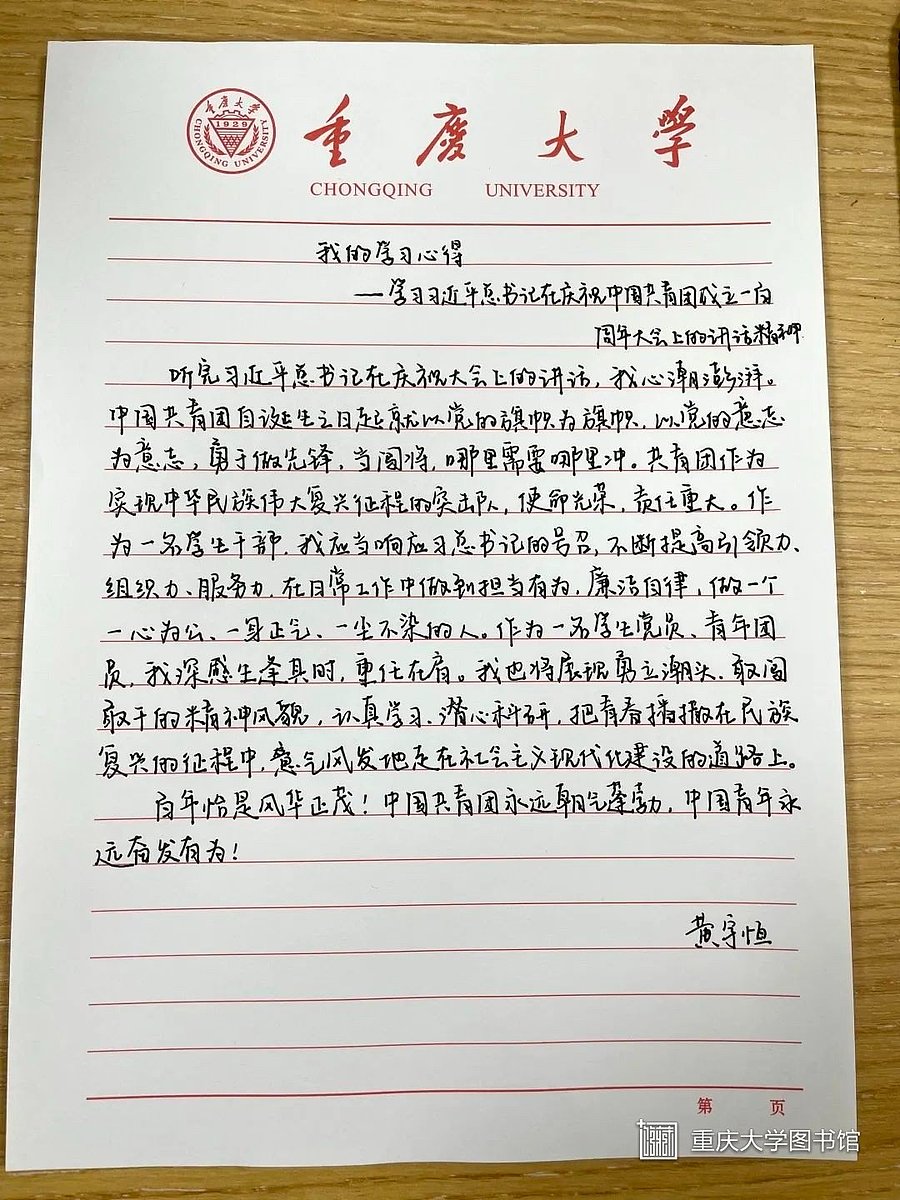 重庆大学
CHONGQING UNIVERSITY
1929
重庆大学
CHONGQING UNIVERSITY
我的学习心得
—学习习近平总书记在庆祝中国共青团成立一百
周年大会上的讲话精神
听完习近平总书记在庆祝大会上的讲话，我心潮澎湃。
中国共青团自诞生之日起就以党的旗帜为旗帜、以党的意志
为意志，勇于做先锋，当闯将，哪里需要哪里冲。共青团作为
实现中华民族伟大复兴征程的突击队，使命光荣，责任重大。作
为一名学生干部，我应当响应习总书记的号召，不断提高引领力、
组织力、服务力，在日常工作中做到担当有为，廉洁自律，做一个
一心为公、一身正气、一尘不染的人。作为一名学生党员、青年团
员，我深感生逢其时，重任在肩。我也将展现勇立潮头、敢闯
敢干的精神风貌，认真学习、潜心科研，把青春播撒在民族
复兴的征程中，意气风发地走在社会主义现代化建设的道路上。
百年恰是风华正茂！中国共青团永远朝气蓬勃，中国青年永
远奋发有为！
黄宇恒
第 页
重庆大学图书馆